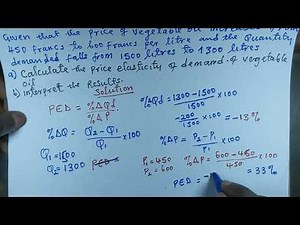 Given that the price of vegetable oil
450 francs to 600 francs per litre and the quantity
demanded falls from 1500 litres to 1300 litres
a) Calculate the price elasticity of demand of vegetable
oil
b) Interpret the Results.
Solution
PED = %ΔQd / %ΔP
%ΔQd = 1300-1500 / 1500 x 100
-200 / 1500 x 100 = -13%
%ΔQ = Q2 - Q1 / Q1 x 100
%ΔP = P2 - P1 / P1 x 100
Q1 = 1500
Q2 = 1300
P1 = 450
P2 = 600
%ΔP = 600-450 / 450 x 100
= 33%
PED = -